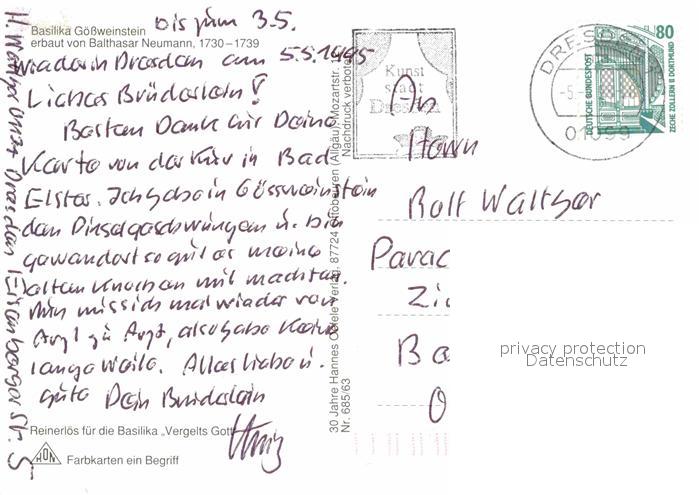 bis zum 3.5.
Basilika Gößweinstein
erbaut von Balthasar Neumann, 1730–1739
wieder in Dresden am 5.5.1995
Liebes Brüderlein!
Besten Dank für Deine
Karte von der Kur in Bad
Elster. Ich habe in Gössweinstein
den Pinsel geschwungen u. bin
gewandert so gut es meine
alten Knochen mit machten.
Nun muss ich mal wieder von
Arzt zu Arzt, also habe keine
lange weile. Alles liebe u.
gute Dein Brüderlein
Heinz
Reinerlös für die Basilika „Vergelts Gott
HON
Farbkarten ein Begriff
Dresden Eisenberger Str. 5
30 Jahre Hannes Oefele Verlag, 87724 Ottobeuren (Allgäu) Mozartstr.
Nr. 685/63
Nachdruck verboten
Kunst
stadt
Dresden
DRESDEN
01099
80
DEUTSCHE BUNDESPOST
ZECHE ZOLLERN II DORTMUND
An
Herrn
Rolf Walther
Parac
Zi
Ba
O
privacy protection
Datenschutz